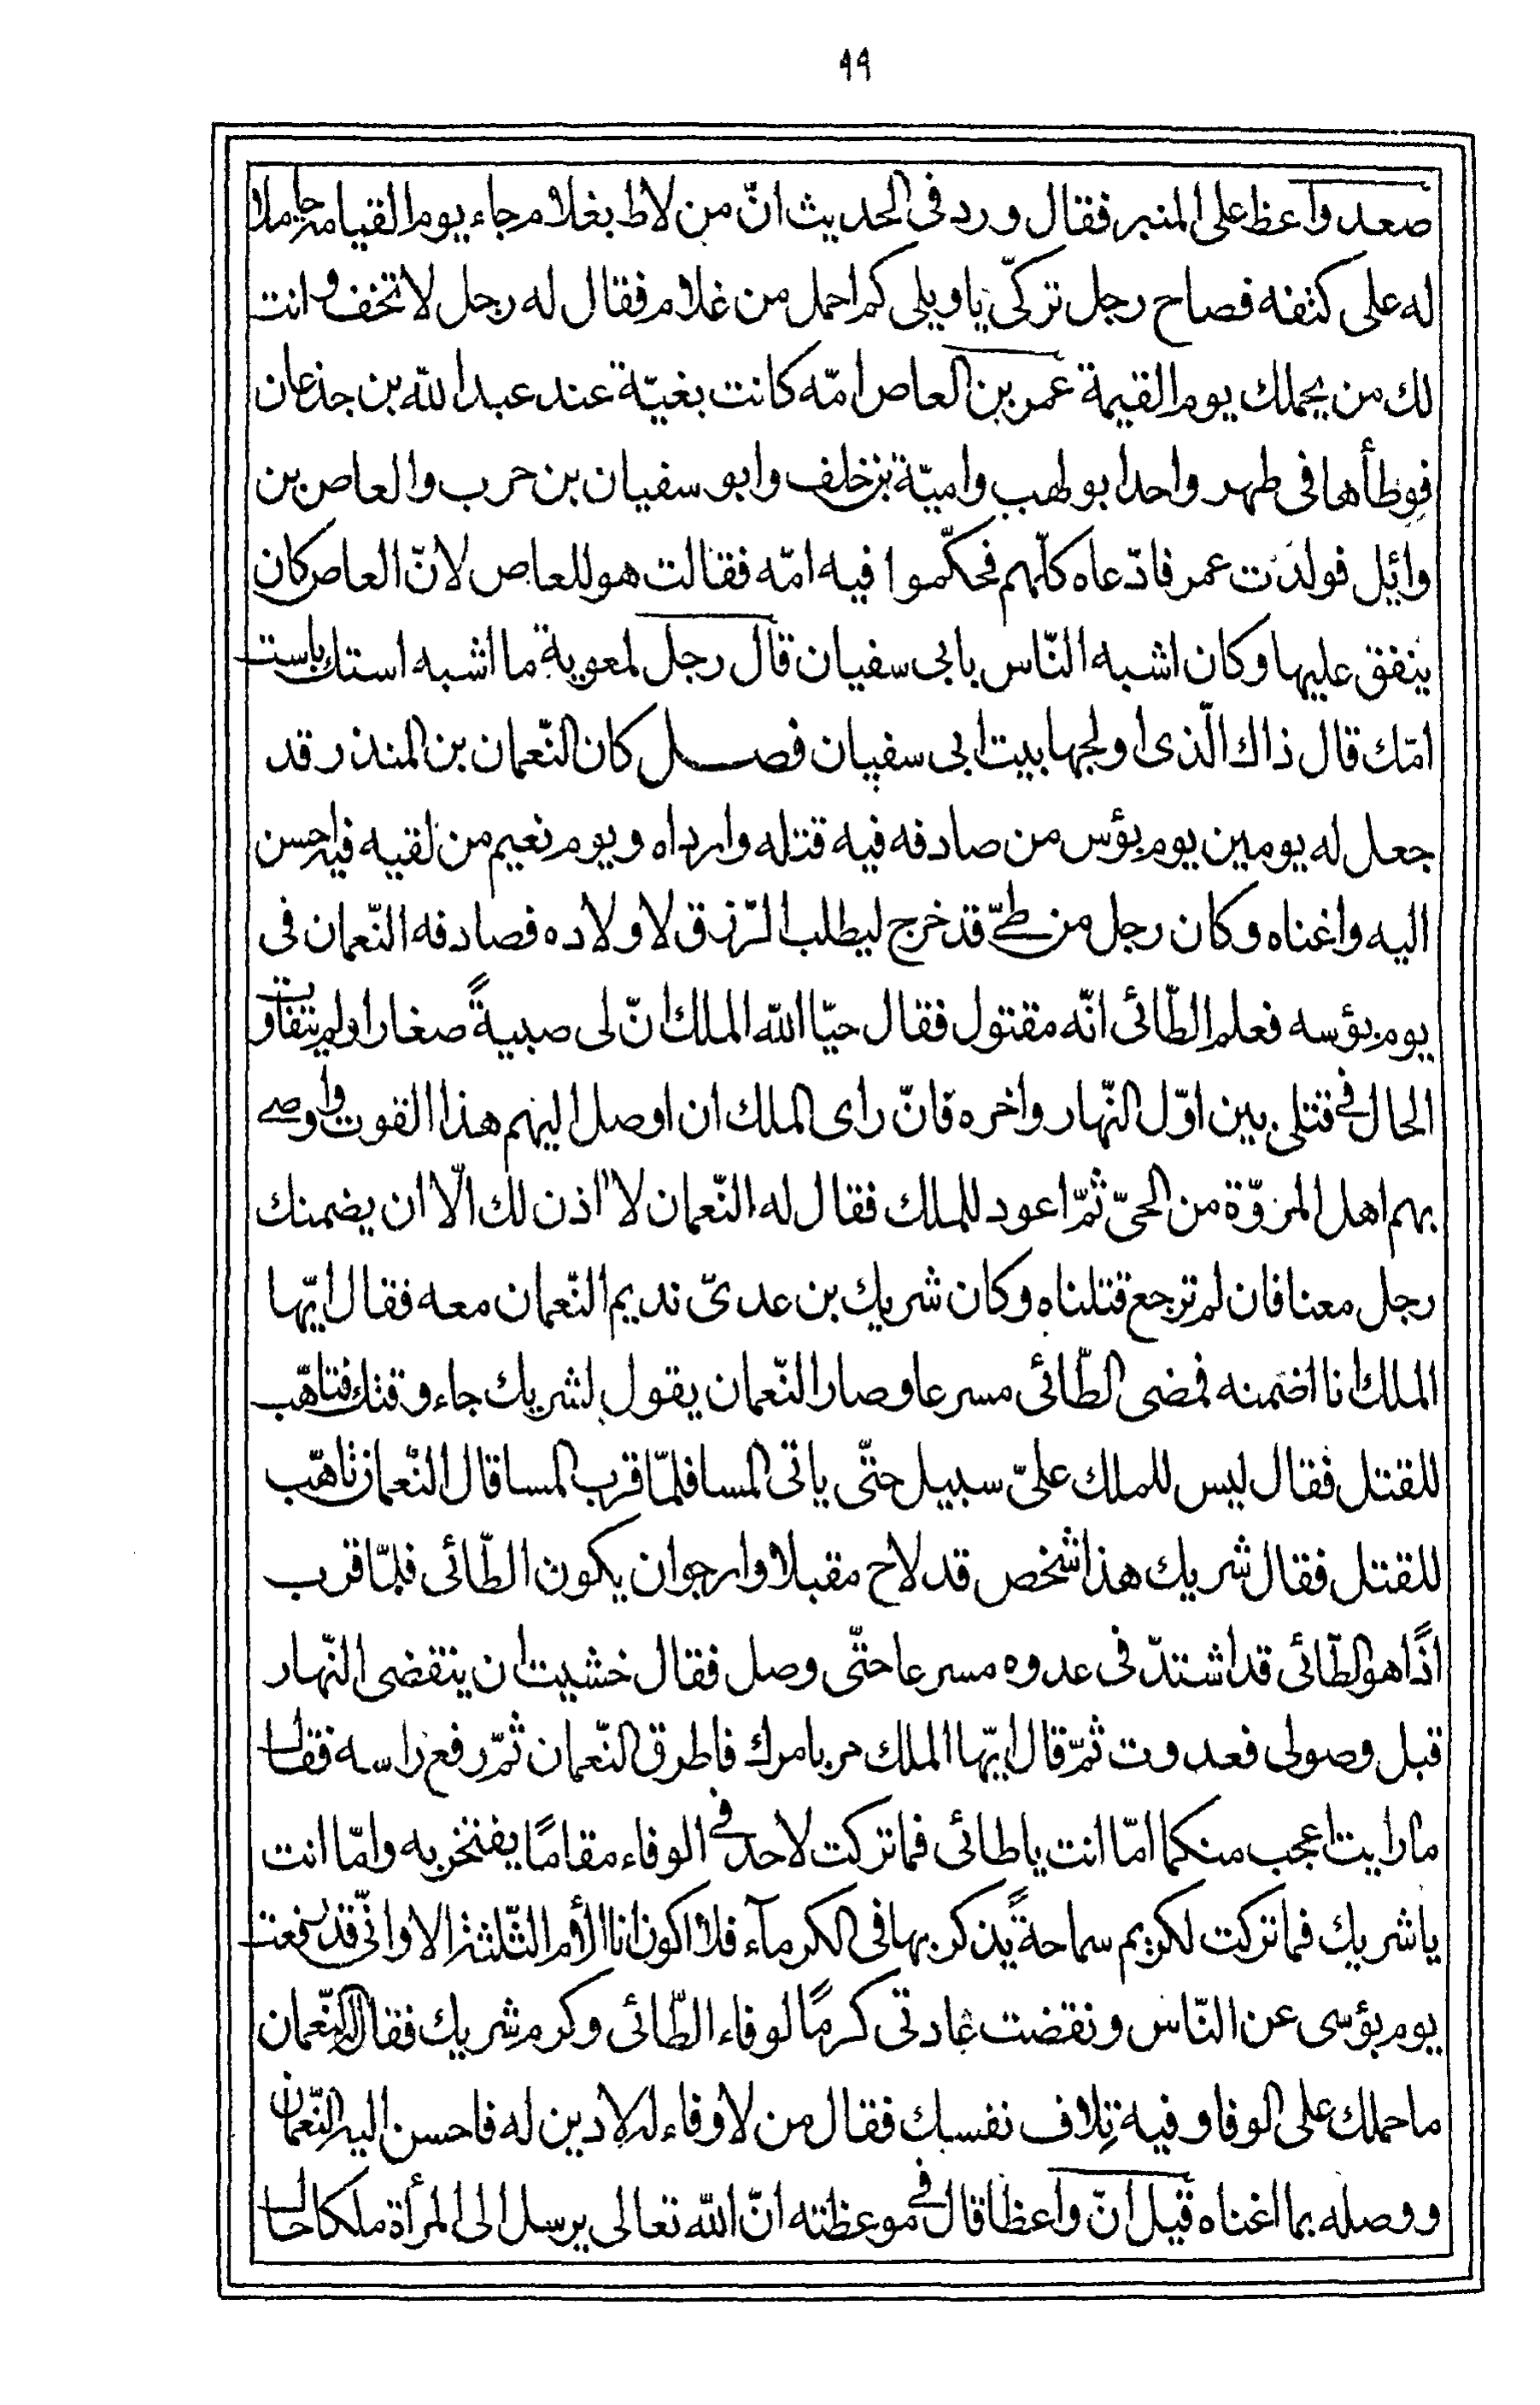 ٩٩
صعد واعظ على المنبر فقال ورد فى الحديث انّ من لاط بغلام جاء يوم القيامة حاملا
له على كتفه فصاح رجل تركىّ يا ويلى كم احمل من غلام فقال له رجل لا تخف وانت
لك من يحملك يوم القيمة عمر بن العاص امّه كانت بغيّة عند عبد اللّه بن جذعان
فوطأها فى طهر واحد ابو لهب واميّة بن خلف وابو سفيان بن حرب والعاص بن
وائل فولدت عمر فادّعاه كلّهم فحكّموا فيه امّه فقالت هو للعاص لانّ العاص كان
ينفق عليها وكان اشبه النّاس بابى سفيان قال رجل لمعوية ما اشبه استك باست
امّك قال ذاك الّذى اولجها بيت ابى سفيان فصل كان النّعمان بن المنذر قد
جعل له يومين يوم بؤس من صادفه فيه قتله وارداه ويوم نعيم من لقيه فيه احسن
اليه واغناه وكان رجل من طىّ قد خرج ليطلب الرّزق لاولاده فصادفه النّعمان فى
يوم بؤسه فعلم الطّائى انّه مقتول فقال حيّا اللّه الملك انّ لى صبيةً صغارا ولم يتفاوت
الحال فى قتلى بين اوّل النّهار واخره فانّ راى الملك ان اوصل اليهم هذا القوت واوصى
بهم اهل المروّة من الحىّ ثمّ اعود للملك فقال له النّعمان لا اذن لك الّا ان يضمنك
رجل معنا فان لم ترجع قتلناه وكان شريك بن عدىّ نديم النّعمان معه فقال ايّها
الملك انا اضمنه فمضى الطّائى مسرعا وصار النّعمان يقول لشريك جاء وقتك فتاهّب
للقتل فقال ليس للملك علىّ سبيل حتّى ياتى المسا فلمّا قرب المسا قال النّعمان تاهّب
للقتل فقال شريك هذا شخص قد لاح مقبلا وارجو ان يكون الطّائى فلمّا قرب
اذًا هو الطّائى قد اشتدّ فى عدوه مسرعا حتّى وصل فقال خشيت ان ينقضى النّهار
قبل وصولى فعدوت ثمّ قال ايّها الملك مر بامرك فاطرق النّعمان ثمّ رفع راسه فقال
ما رايت اعجب منكما امّا انت يا طائى فما تركت لاحد فى الوفاء مقامًا يفتخر به وامّا انت
يا شريك فما تركت لكريم سماحةً يذكر بها فى الكرمآء فلا اكون انا الأم الثّلثة الا وانّى قد رفعت
يوم بؤسى عن النّاس ونقضت عادتى كرمًا لوفاء الطّائى وكرم شريك فقال له النّعمان
ما حملك على الوفا وفيه تلاف نفسك فقال من لا وفاء له لا دين له فاحسن اليه النّعمان
ووصله بما اغناه قيل انّ واعظا قال فى موعظته انّ اللّه تعالى يرسل الى المرأة ملكا حال